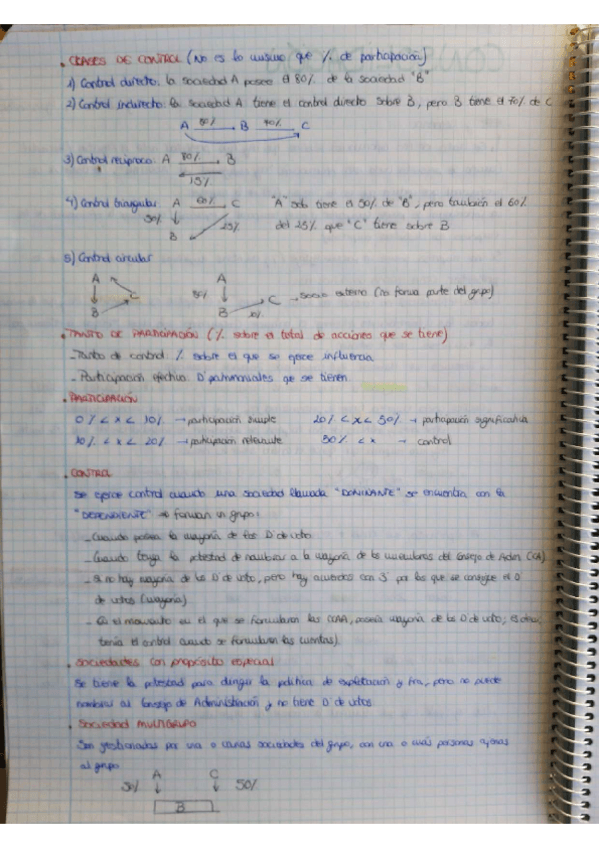 . CLASES DE CONTROL (No es lo mismo que % de participación)
1) Control directo: la sociedad A posee el 80% de la sociedad "B"
2) Control indirecto: la sociedad A tiene el control directo sobre B, pero B tiene el 70% de C
A 80% B 70% C
3) Control recíproco: A 80% B
15%
4) Control triangular A 60% C "A" solo tiene el 50% de "B", pero también el 60%
50% 25% del 25% que "C" tiene sobre B
B
5) Control circular
A A
C 80% C → Socio externo (no forma parte del grupo)
B B
. TANTO DE PARTICIPACIÓN (% sobre el total de acciones que se tiene)
- Tanto de control: % sobre el que se ejerce influencia
- Participación efectiva: D' patrimoniales que se tienen
. PARTICIPACIÓN
0% < x < 10% → participación simple 20% < x < 50% → participación significativa
10% < x < 20% → participación relevante 50% < x → control
. CONTROL
Se ejerce control cuando una sociedad llamada "DOMINANTE" se encuentra con la
"DEPENDIENTE" → forman un grupo:
- Cuando posea la mayoría de los D' de voto
- Cuando tenga la potestad de nombrar a la mayoría de los miembros del Consejo de Admon (CA)
- Si no hay mayoría de los D' de voto, pero hay acuerdos con 3º por los que se consigue el D'
de votos (mayoría)
- En el momento en el que se formularon las CCAA, poseía mayoría de los D' de voto; es decir,
tenía el control cuando se formularon las cuentas)
. Sociedades con propósito especial
Se tiene la potestad para dirigir la política de explotación y fra, pero no puede
nombrar al Consejo de Administración y no tiene D' de votos
. Sociedad MULTIGRUPO
Son gestionadas por una o varias sociedades del grupo, con una o más personas ajenas
al grupo
A C
50% 50%
B